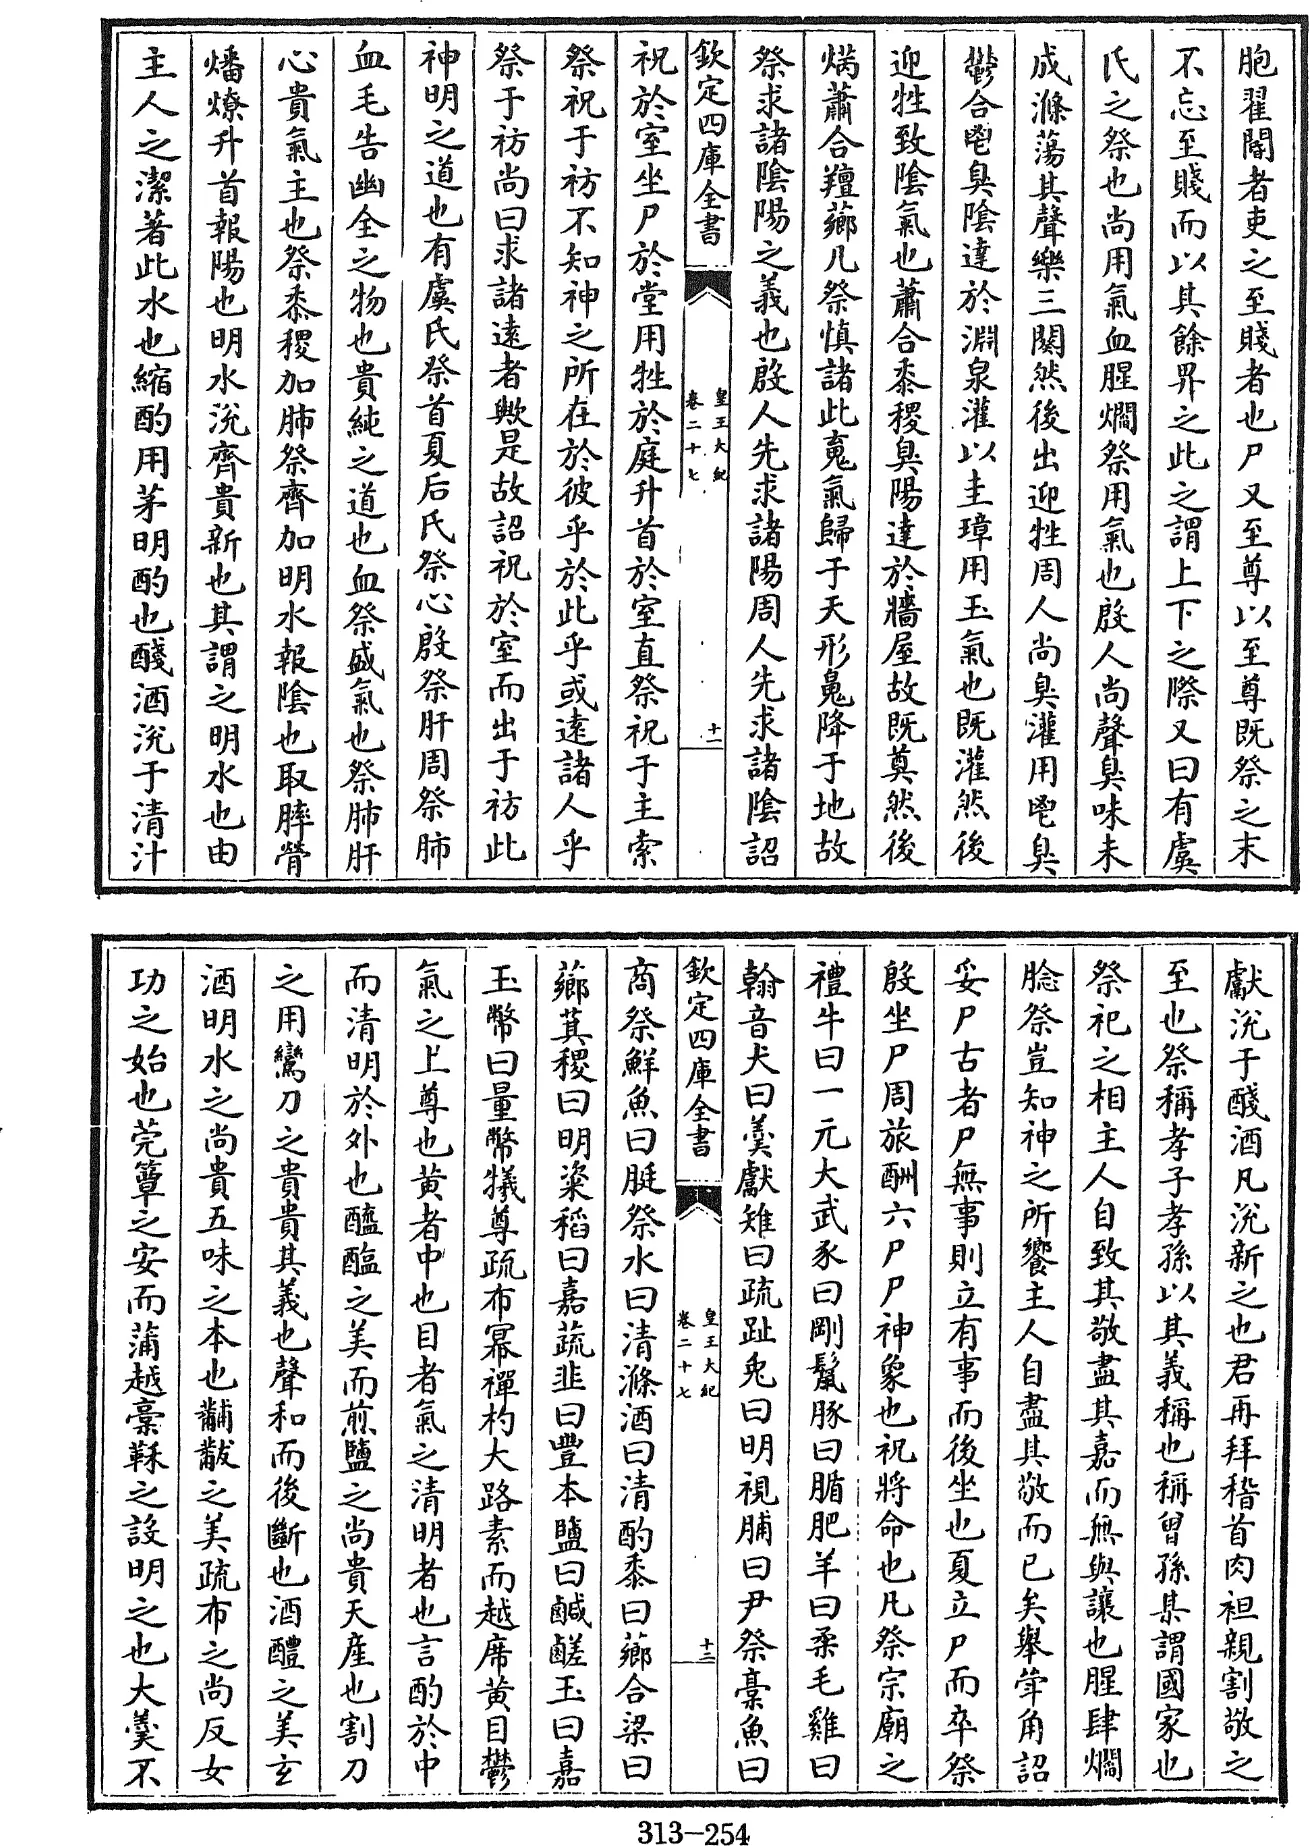 胞翟閽者吏之至賤者也尸又至尊以至尊既祭之末
不忘至賤而以其餘畀之此之謂上下之際又曰有虞
氏之祭也尚用氣血腥爓祭用氣也殷人尚聲臭味未
成滌蕩其聲樂三闋然後出迎牲周人尚臭灌用鬯臭
鬱合鬯臭陰達於淵泉灌以圭璋用玉氣也既灌然後
迎牲致陰氣也蕭合黍稷臭陽達於牆屋故既奠然後
焫蕭合羶薌凡祭慎諸此䰟氣歸于天形䰟降于地故
祭求諸陰陽之義也殷人先求諸陽周人先求諸陰詔
欽定四庫全書
皇王大紀
卷二十七
十二
祝於室坐尸於堂用牲於庭升首於室直祭祝于主索
祭祝于祊不知神之所在於彼乎於此乎或遠諸人乎
祭于祊尚曰求諸遠者歟是故詔祝於室而出于祊此
神明之道也有虞氏祭首夏后氏祭心殷祭肝周祭肺
血毛告幽全之物也貴純之道也血祭盛氣也祭肺肝
心貴氣主也祭黍稷加肺祭齊加明水報陰也取膟膋
燔燎升首報陽也明水涚齊貴新也其謂之明水也由
主人之潔著此水也縮酌用茅明酌也醆酒涚于清汁
獻涚于醆酒凡涚新之也君再拜稽首肉袒親割敬之
至也祭稱孝子孝孫以其義稱也稱曾孫某謂國家也
祭祀之相主人自致其敬盡其嘉而無與讓也腥肆爓
腍祭豈知神之所饗主人自盡其敬而已矣舉斝角詔
妥尸古者尸無事則立有事而後坐也夏立尸而卒祭
殷坐尸周旅酬六尸尸神象也祝將命也凡祭宗廟之
禮牛曰一元大武豕曰剛鬣豚曰腯肥羊曰柔毛雞曰
翰音犬曰羹獻雉曰疏趾兎曰明視脯曰尹祭槀魚曰
欽定四庫全書
皇王大紀
卷二十七
十三
商祭鮮魚曰脡祭水曰清滌酒曰清酌黍曰薌合梁曰
薌萁稷曰明粢稻曰嘉蔬韭曰豐本鹽曰鹹鹺玉曰嘉
玉幣曰量幣犧尊疏布冪禪杓大路素而越席黄目鬱
氣之上尊也黄者中也目者氣之清明者也言酌於中
而清明於外也醯醢之美而煎鹽之尚貴天産也割刀
之用鸞刀之貴貴其義也聲和而後斷也酒醴之美玄
酒明水之尚貴五味之本也黼黻之美疏布之尚反女
功之始也莞簟之安而蒲越槀鞂之設明之也大羹不
313-254